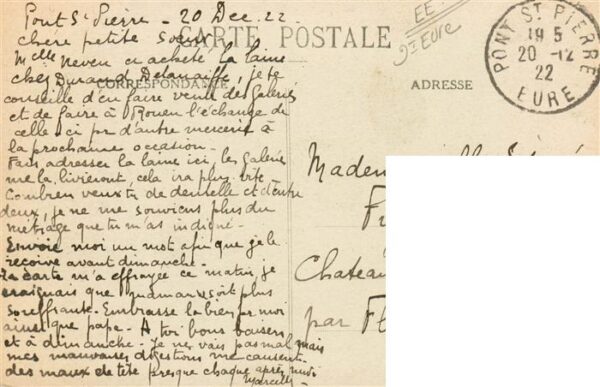 Pont St Pierre - 20 Dec. 22
Chère petite Soeur,
CARTE POSTALE
Melle Neveu a acheté la laine
chez Durand Delamaille, je te
CORRESPONDANCE
conseille d'en faire venir des Galeries
et de faire à Rouen l'échange de
celle ci pr d'autre mercerie à
la prochaine occasion.
Fais adresser la laine ici, les Galeries
me la livreront, cela ira plus vite.
Combien veux tu de dentelle et d'entre
deux, je ne me souviens plus du
métrage que tu m'as indiqué.
Envoie moi un mot afin que je le
reçoive avant dimanche.
Ta carte m'a effrayée ce matin, je
craignais que maman soit plus
souffrante. Embrasse la bien pr moi
ainsi que papa. A toi bons baisers
et à dimanche. Je ne vais pas mal mais
mes mauvaises digestions me causent
des maux de tête presque chaque après midi
Marcelle
EE
9t Eure
ADRESSE
PONT ST PIERRE
19 5
20 -12
22
EURE
Madem
Chateau
par Fl